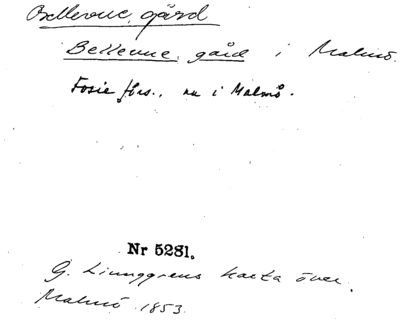 Bellevue, gård
Bellevue, gård i Malmö.
Fosie förs., nu i Malmö.
Nr 5281.
G. Ljunggrens karta över
Malmö 1853.